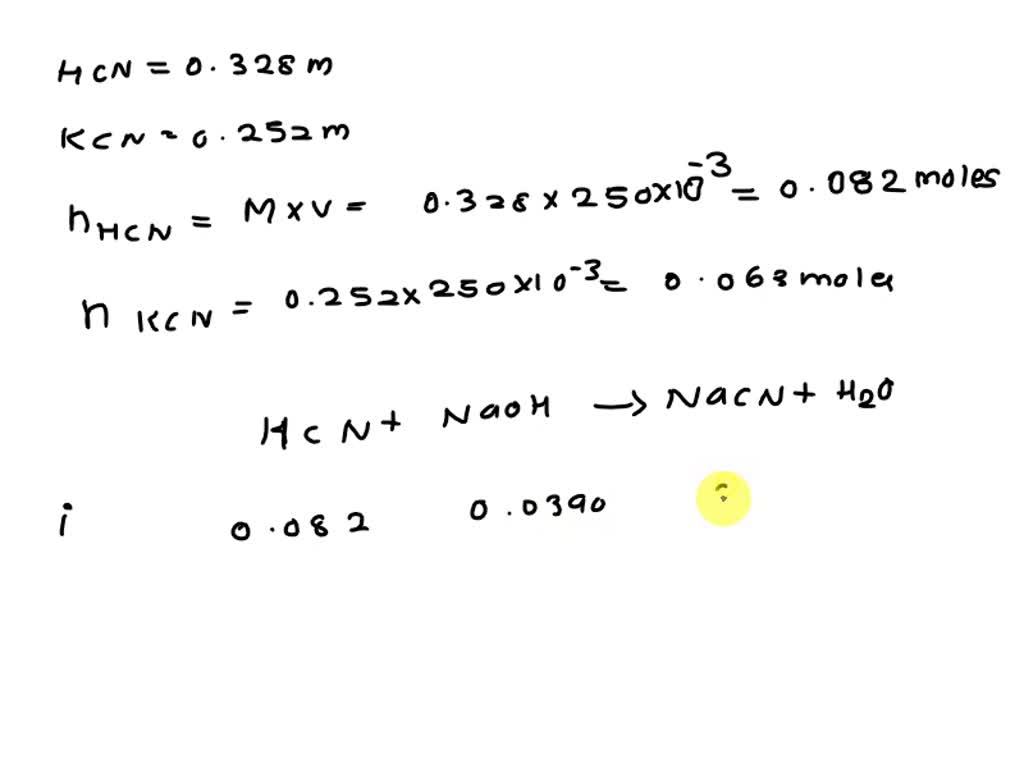 HCN = 0.328 m
KCN = 0.252 m
nHCN = M×V = 0.328 × 250×10⁻³ = 0.082 moles
n KCN = 0.252×250×10⁻³ = 0.063 moles
HCN + NaOH → NaCN + H₂O
i 0.082 0.0390